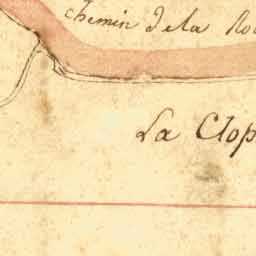 chemin de la Ro
La Clop